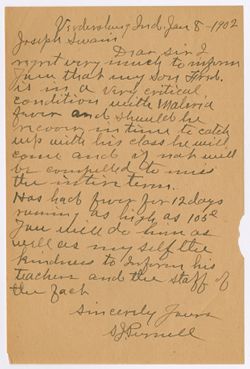 Veedersburg Ind. Jan 8 - 1902
Joseph Swain
Dear Sir. I
regret very much to inform
you that my son Fred.
is in a very critical
condition with Malaria
fever and should he
recover in time to catch
up with his class he will
come and if not will
be compelled to miss
the entire term.
Has had fever for 12 days
running as high as 105
you will do him as
well as my self the
kindness to inform his
teachers and the staff of
the fact
Sincerely Yours
Purnell